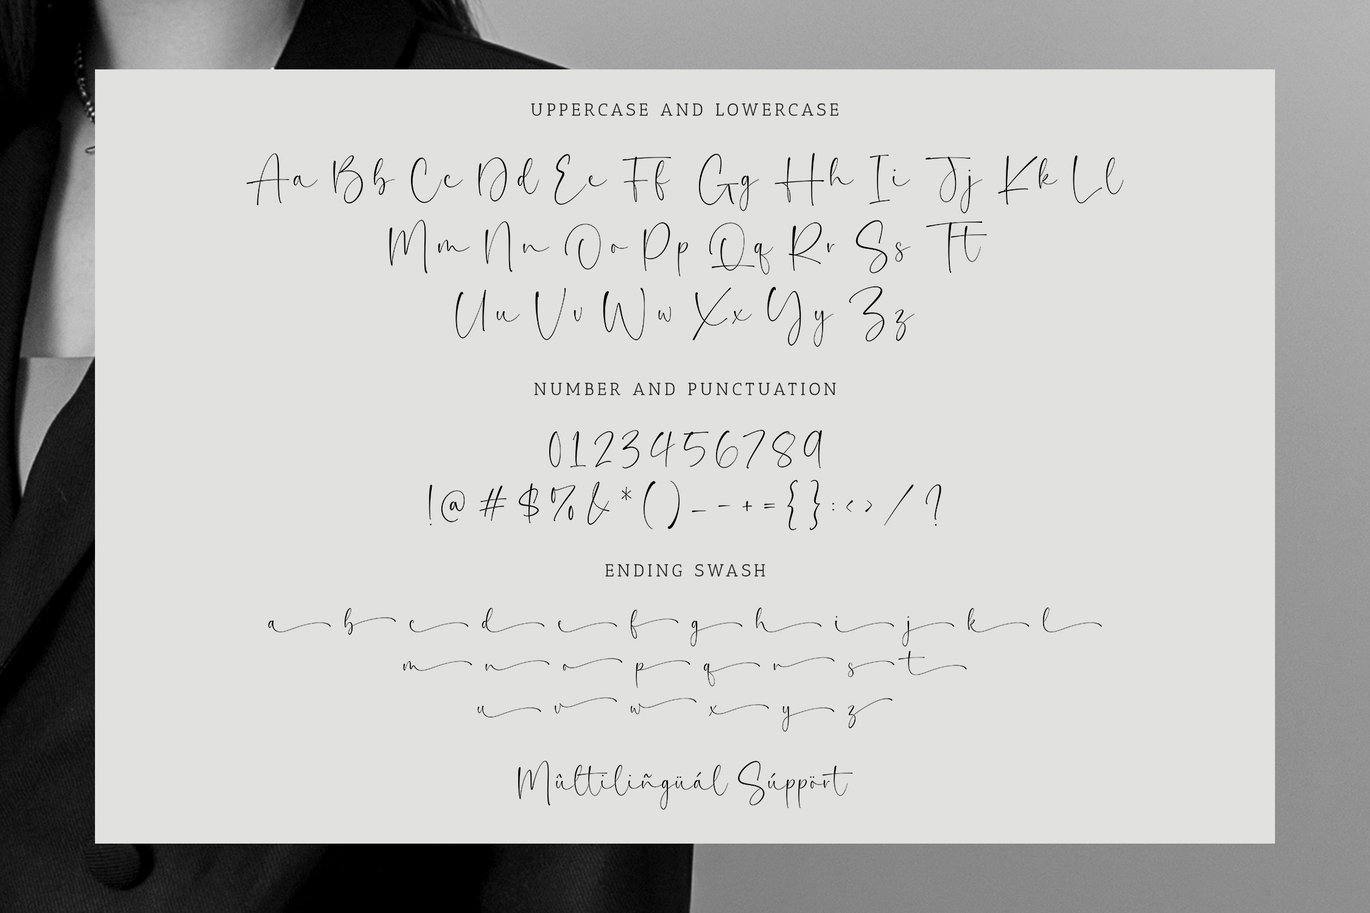 UPPERCASE AND LOWERCASE
Aa Bb Cc Dd Ee Ff Gg Hh Ii Jj Kk Ll
Mm Nn Oo Pp Qq Rr Ss Tt
Uu Vv Ww Xx Yy Zz
NUMBER AND PUNCTUATION
0123456789
!@#$%&*()_-+={}:<>/?
ENDING SWASH
a b c d e f g h i j k l
m n o p q r s t
u v w x y z
Mûltiliñgüál Súppört